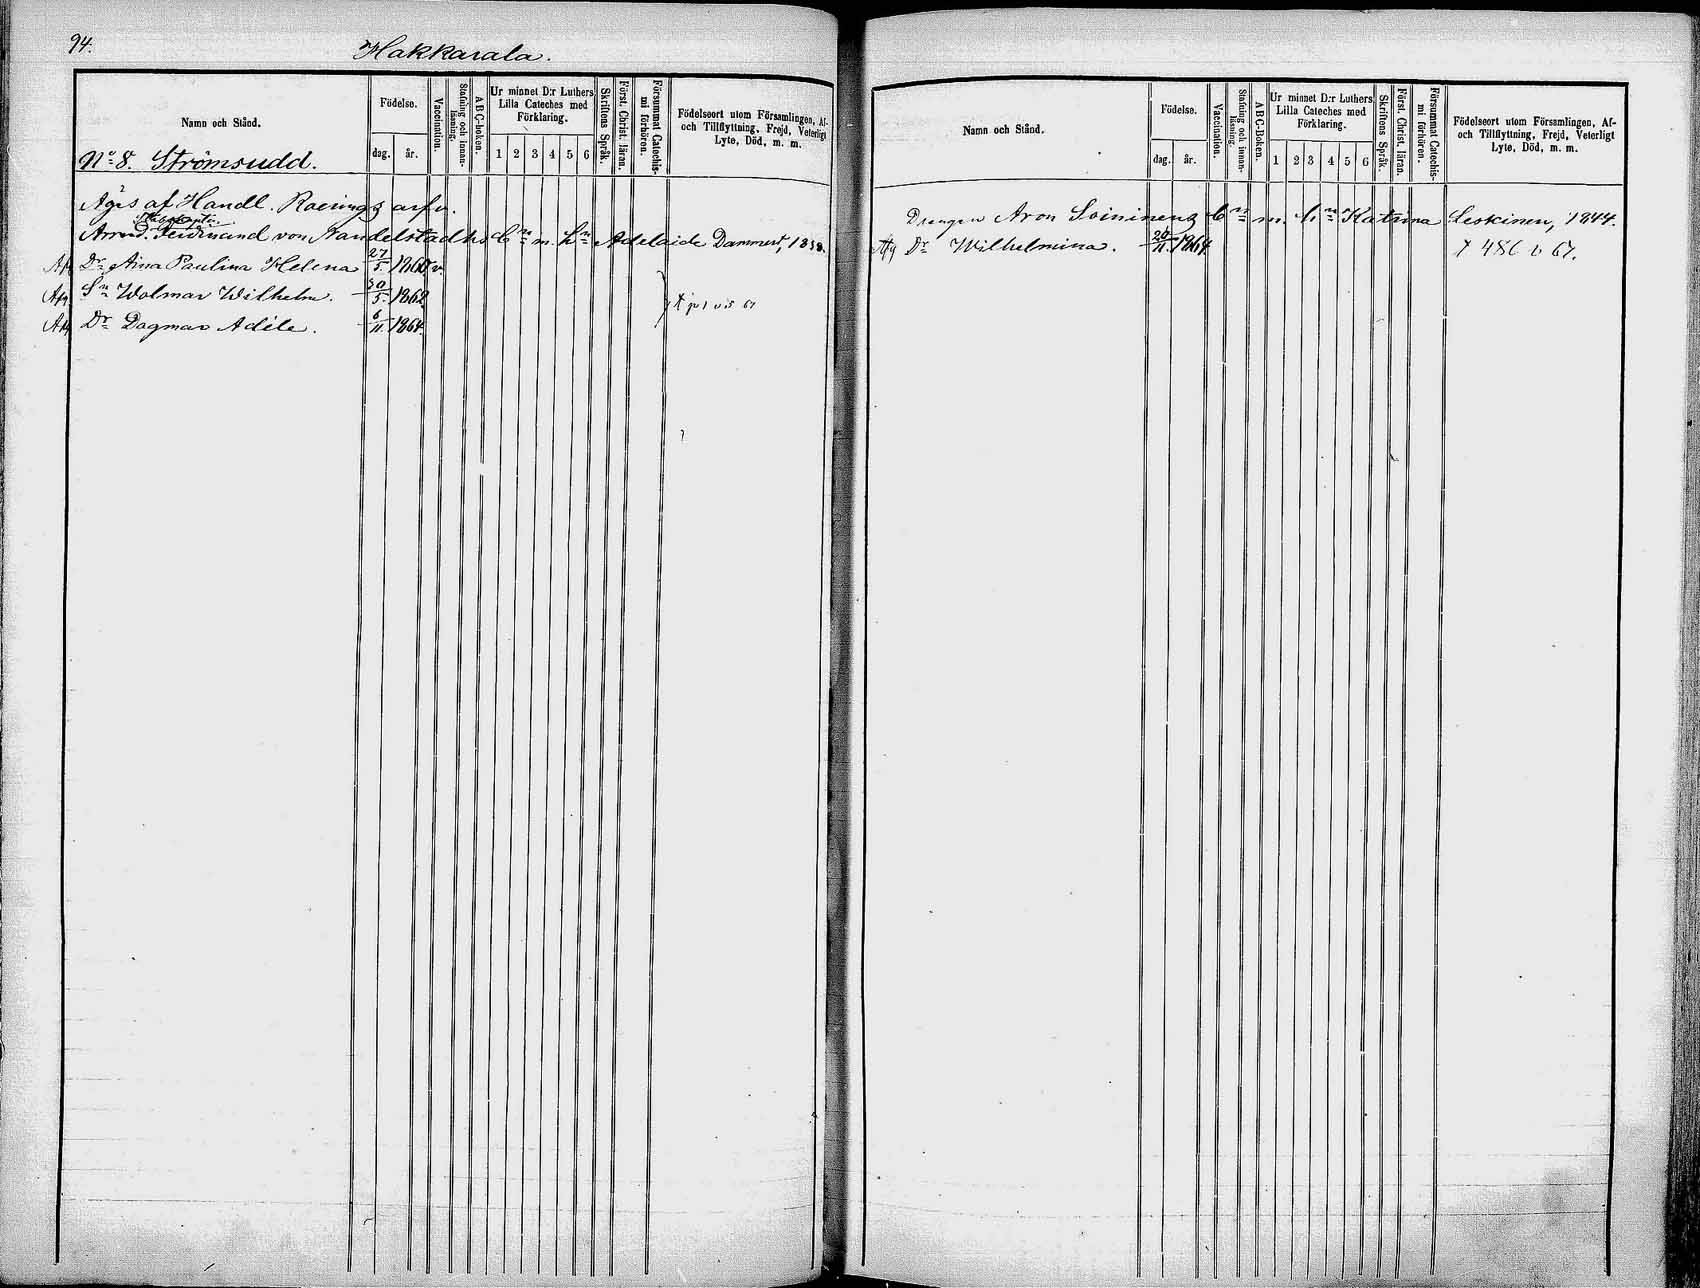 94.
Hakkarala.
Namn och Stånd.
Födelse.
dag.
år.
Vaccination.
Stafning och innan-läsning.
ABC-boken.
Ur minnet D:r Luthers Lilla Cateches med Förklaring.
1 2 3 4 5 6
Skriftens Språk.
Först. Christ. läran.
Försummat Catechis-mi förhören.
Födelseort utom Församlingen, Af- och Tillflyttning, Frejd, Veterligt Lyte, Död, m. m.
No 8. Strömsudd.
Äges af Handl. Roerings arfv.
Arrend. Ferdinand von Nandelstadhs Bn m. hn Adelaide Dammert, 1858.
Dr Aina Paulina Helena 27/5 1860 v.
Sn Wolmar Wilhelm. 30/5 1862
Dr Dagmar Adéle. 6/11 1864.
Namn och Stånd.
Födelse.
dag.
år.
Vaccination.
Stafning och innan-läsning.
ABC-Boken.
Ur minnet D:r Luthers Lilla Cateches med Förklaring.
1 2 3 4 5 6
Skriftens Språk.
Först. Christ. läran.
Försummat Catechis-mi förhören.
Födelseort utom Församlingen, Af- och Tillflyttning, Frejd, Veterligt Lyte, Död, m. m.
Drengen Aron Soininens Bn m. hn Katrina Leskinen, 1844.
Dr Wilhelmina. 20/11 1864. 486 v 67.